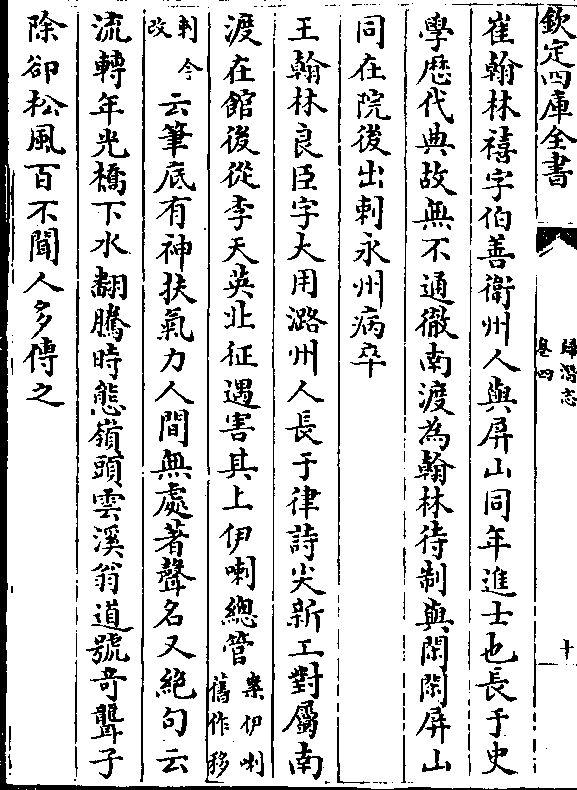 欽定四庫全書
歸潛志
卷四
十
崔翰林禧字伯善衛州人與屏山同年進士也長于史
學歷代典故無不通徹南渡為翰林待制與閑閑屏山
同在院後出刺永州病卒
王翰林良臣字大用潞州人長于律詩尖新工對屬南
渡在館後從李天英北征遇害其上伊喇總管
案伊喇
舊作移
剌今
改
云筆底有神扶氣力人間無處著聲名又絶句云
流轉年光橋下水翻騰時態嶺頭雲溪翁道號竒聾子
除卻松風百不聞人多傳之